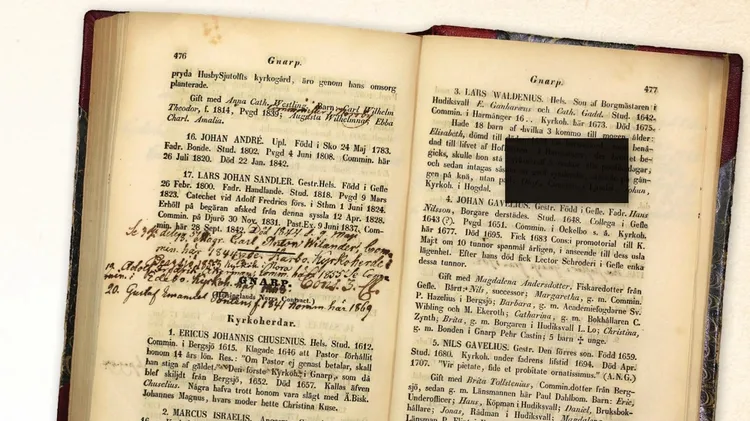 476
Gnarp.
pryda HusbySjutolfts kyrkogård, äro genom hans omsorg
planterade.
Gift med Anna Cath. Westling. Barn: Carl Wilhelm
Theodor, f. 1814, Pvgd 1839, Augusta Wilhelmina, Ebba
Charl. Amalia.
16. JOHAN ANDRÉ. Upl. Född i Sko 24 Maj 1783.
Fadr. Bonde. Stud. 1802. Pvgd 4 Juni 1808. Commin. här
26 Juli 1820. Död 22 Jan. 1842.
17. LARS JOHAN SANDLER. Gestr.Hels. Född i Gefle
26 Febr. 1800. Fadr. Handlande. Stud. 1818. Pvgd 9 Mars
1823. Catechet vid Adolf Fredrics förs. i Sthm 1 Juni 1824.
Erhöll på begäran afsked från denna syssla 12 Apr. 1828.
Commin. på Djurö 30 Nov. 1831. Past.Ex. 9 Juni 1837. Com-
min. här 28 Sept. 1842. Död 1844 d. 9 maj
18. Magr. Carl Anton Wilander, Com
min. här 1844
Kyrkoherde
19. Adolf
20. Gustaf Emanuel 1841 Comin. här 1869
GNARP.
(Helsinglands Norra Contract.)
Kyrkoherdar.
1. ERICUS JOHANNIS CHUSENIUS. Hels. Stud. 1612.
Commin. i Bergsjö 1615. Klagade 1646 att Pastor förhållit
honom 14 års lön. Res.: "Om Pastor ej genast betalar, skall
han stiga af gäldet." Den förste Kyrkoh. i Gnarp, som då
blef skiljdt från Bergsjö, 1652. Död 1657. Kallas äfven
Chuselius. Några hafva trott honom vara slägt med Ä.Bisk.
Johannes Magnus, hvars moder hette Christina Kuse.
2. MARCUS ISRAELIS.
Gnarp.
477
3. LARS WALDENIUS. Hels. Son af Borgmästaren i
Hudiksvall E. Ganharvus och Cath. Gadd. Stud. 1642.
Commin. i Harmånger 16... Kyrkoh. här 1673. Död 1675.
Hade 18 barn af hvilka 3 kommo till mogen ålder:
Elisabeth, dömd till
benå-
dad till lifvet af Hof
be-
gicks, skulle hon stå
dagar;
och sedan intagas
gån-
gen på knä, utan
Kyrkoh. i Hogdal.
4. JOHAN GAVELIUS. Gestr. Född i Gefle. Fadr. Hans
Nilsson, Borgare derstädes. Stud. 1648. Collega i Gefle
1643 (?). Pvgd 1651. Commin. i Ockelbo s. å. Kyrkoh.
här 1677. Död 1695. Fick 1683 Cons:s promotorial till K.
Majt om 10 tunnor spanmål årligen, i anseende till dess usla
lägenhet. Efter hans död fick Lector Schroderi i Gefle enka
dessa tunnor.
Gift med Magdalena Andersdotter, Fiskaredotter från
Gefle. Barn: Nils, successor; Margaretha, g. m. Commin.
P. Hazelius i Bergsjö; Barbara, g. m. Academiefogdarne Sv.
Wibling och M. Ekeroth; Catharina, g. m. Bokhållaren C.
Zynth; Brita, g. m. Borgaren i Hudiksvall L. Lo; Christina,
g. m. Bonden i Gnarp Pehr Castin; 5 barn † unge.
5. NILS GAVELIUS. Gestr. Den förres son. Född 1659.
Stud. 1680. Kyrkoh. under fadrens lifstid 1694. Död Apr.
1707. "Vir pietate, fide et probitate ornatissimus." (A.N.G.)
Gift med Brita Tollstenius, Commin.dotter från Berg-
sjö, sedan g. m. Länsmannen här Paul Dahlbom. Barn: Eric,
Underofficer; Hans, Köpman i Hudiksvall; Daniel, Bruksbok-
hållare; Jonas, Rådman i Hudiksvall; Magdalena,